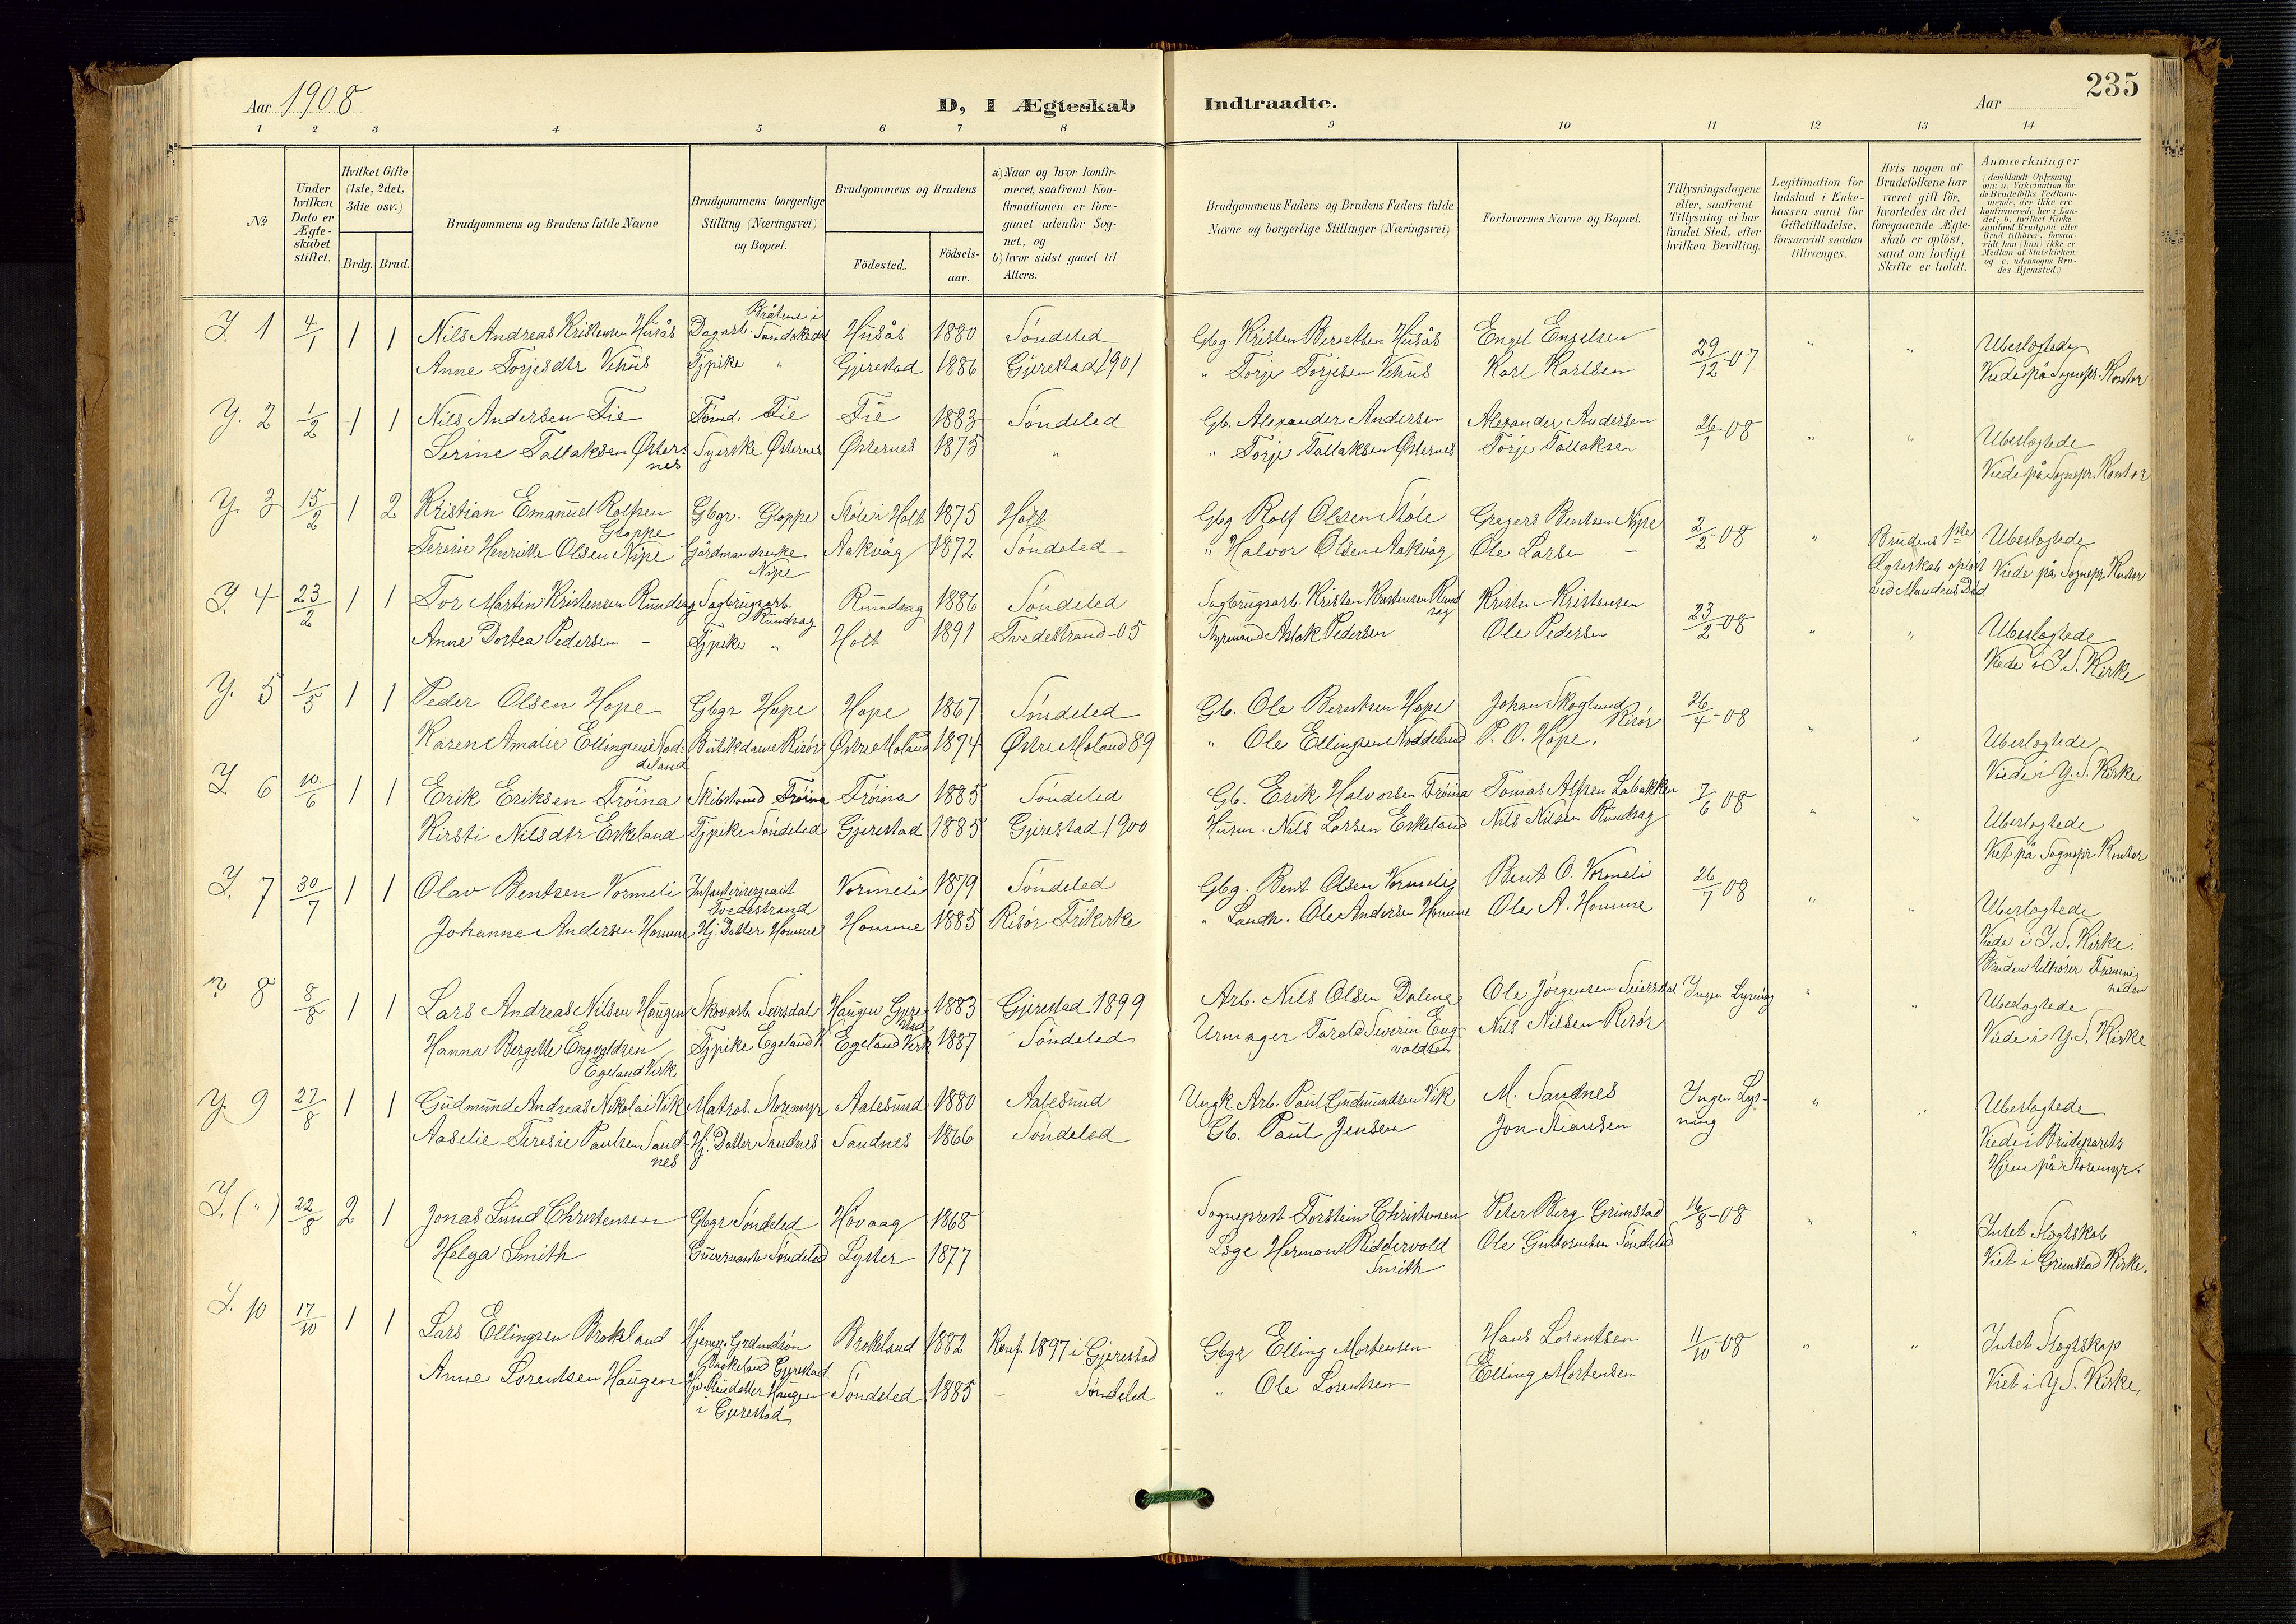 235
Aar 1908
D, I Ægteskab Indtraadte.
Aar
1 2 3 4 5 6 7 8 9 10 11 12 13 14
No
Under hvilken Dato er Ægteskabet stiftet.
Hvilket Gifte (1ste, 2det, 3die osv.)
Brdg. Brud.
Brudgommens og Brudens fulde Navne
Brudgommens borgerlige Stilling (Næringsvei) og Bopæl.
Brudgommens og Brudens
Födested.
Födselsaar.
a) Naar og hvor konfirmeret, saafremt Konfirmationen er foregaaet udenfor Sognet, og
b) hvor sidst gaaet til Alters.
Brudgommens Faders og Brudens Faders fulde Navne og borgerlige Stillinger (Næringsvei)
Forlovernes Navne og Bopæl.
Tillysningsdagene eller, saafremt Tillysning ei har fundet Sted, efter hvilken Bevilling.
Legitimation for Indskud i Enkekassen samt for Giftetilladelse, forsaavidt saadan tiltrænges.
Hvis nogen af Brudefolkene har været gift för, hvorledes da det foregaaende Ægteskab er oplöst, samt om lovligt Skifte er holdt.
Anmærkninger (deriblandt Oplysning om: a. Vakcination för de Brudefolks Vedkommende, der ikke ere konfirmerede her i Landet; b. hvilket Kirkesamfund Brudgom eller Brud tilhörer, forsaavidt han (hun) ikke er Medlem af Statskirken, og c. udensogns Brudes Hjemsted.)
Y. 1 4/1 1 1 Nils Andreas Kristensen Husås Dagarb. Bråtene i Sundskedet Husås 1880 Söndeled Gbg Kristen Berntsen Husås Engel Engelsen 29/12 07 " " Ubeslægtede
Anne Torjesdtr Vehus Tjpike " Gjerestad 1886 Gjerestad 1901 " Torje Torjesen Vehus Karl Karlsen Viede på Sognepr. Kontor
Y. 2 1/2 1 1 Nils Andersen Fie Tömd. Fie Fie 1883 Söndeled Gb. Alexander Andersen Alexander Andersen 26/1 08 " " Ubeslægtede
Serine Tallaksen Østernes Syerske Østernes Østernes 1875 " " Torje Tallaksen Østernes Torje Tallaksen Viede på Sognepr. Kontor
Y. 3 15/2 1 2 Kristian Emanuel Rolfsen Gloppe Gbgr. Gloppe Støle i Holt 1875 Holt Gbg Rolf Olsen Støle Gregers Bentsen Nipe 2/2 08 " Brudens 1ste Ubeslægtede
Teresie Henrikke Olsen Nipe Gårdmandsenke Nipe Aakvåg 1872 Söndeled " Halvor Olsen Aakvåg Ole Larsen – Ægteskab oplöst ved Mandens Död Viede på Sognepr. Kontor
Y. 4 23/2 1 1 Tor Martin Kristensen Rundsag Sagbrugsarb. Rundsag Rundsag 1886 Söndeled Sagbrugsarb. Kristen Karstensen Rundsag Kristen Kristensen 23/2 08 " " Ubeslægtede
Anne Dortea Pedersen – Tjpike " Holt 1891 Tvedestrand -05 Styrmand Aslak Pedersen Ole Pedersen Viede i Y. S. Kirke
Y. 5 1/5 1 1 Peder Olsen Hope Gbgr Hope Hope 1867 Söndeled Gb. Ole Berentsen Hope Johan Skoglund Risör 26/4 08 " " Ubeslægtede
Karen Amalie Ellingsen Noddeland Butikdame Risör Østre Moland 1874 Østre Moland 89 " Ole Ellingsen Noddeland P. O. Hope. Viede i Y. S. Kirke
Y. 6 10/6 1 1 Erik Eriksen Fröina Skibstömd Fröina Fröina 1885 Söndeled Gb. Erik Halvorsen Fröina Tomas Alfsen Labakken 7/6 08 " " Ubeslægtede
Kirsti Nilsdtr Eskeland Tjpike Söndeled Gjerestad 1885 Gjerestad 1900 Husm. Nils Larsen Eskeland Nils Nilsen Rundsag Viet på Sognepr. Kontor
Y. 7 30/7 1 1 Olav Bentsen Vormeli Infanterisergeant Tvedestrand Vormeli 1879 Söndeled Gbg. Bent Olsen Vormeli Bent O. Vormeli 26/7 08 " " Ubeslægtede
Johanne Andersen Homme Hj. Datter Homme Homme 1885 Risör Frikirke " Landh. Ole Andersen Homme Ole A. Homme Viede i Y. S. Kirke. Bruden tilhörer Frimenigheden
8 8/8 1 1 Lars Andreas Nilsen Haugen Skovarb. Seirsdal Haugen Gjerestad 1883 Gjerestad 1899 Arb. Nils Olsen Dalene Ole Jörgensen Seiersdal Ingen Lysning " " Ubeslægtede
Hanna Bergette Engvoldsen Egeland Verk Tjpike Egeland V. Egeland Verk 1887 Söndeled Urmager Tarald Severin Engvoldsen Nils Nilsen Risör Viede i Y. S. Kirke
Y. 9 27/8 1 1 Gudmund Andreas Nikolai Vik Matros. Storemyr Aalesund 1880 Aalesund Ungk Arb. Paul Gudmundsen Vik M. Sandnes Ingen Lysning " " Ubeslægtede
Aaselie Teresie Paulsen Sandnes Hj. Datter Sandnes Sandnes 1866 Söndeled Gb. Paul Jensen Jon Stiansen Viede i Brudeparets Hjem på Storemyr.
Y. (") 22/8 2 1 Jonas Lund Christensen Gbgr Söndeled Hövaag 1868 Sogneprest Torstein Christensen Peter Berg Grimstad 16/8 -08 " " Intet Slægtskab
Helga Smith Guvernante Söndeled Lyster 1877 Læge Herman Riddervold Smith Ole Guttormsen Söndeled Viet i Grimstad Kirke.
Y. 10 17/10 1 1 Lars Ellingsen Brokeland Brokeland Gjerestad Brokeland 1882 Konf. 1897 i Gjerestad Gbgr Elling Mortensen Hans Lorentsen 11/10 08 " " Intet Slægtskap
Anne Lorentsen Haugen Haugen i Gjerestad Söndeled 1885 – Söndeled " Ole Lorentsen Elling Mortensen Viet i Y S. Kirke.